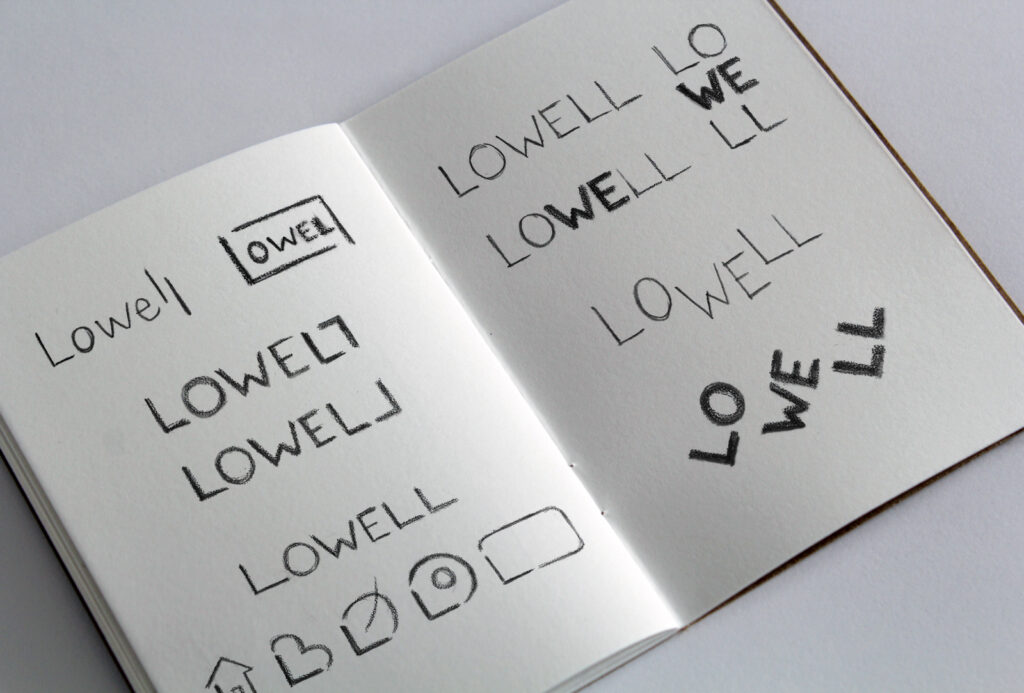 Lowell
LOWEL
LOWEL
LOWEL
LOWELL
LOWELL
LO
WE
LL
LOWELL
LOWELL
LO
WE
LL